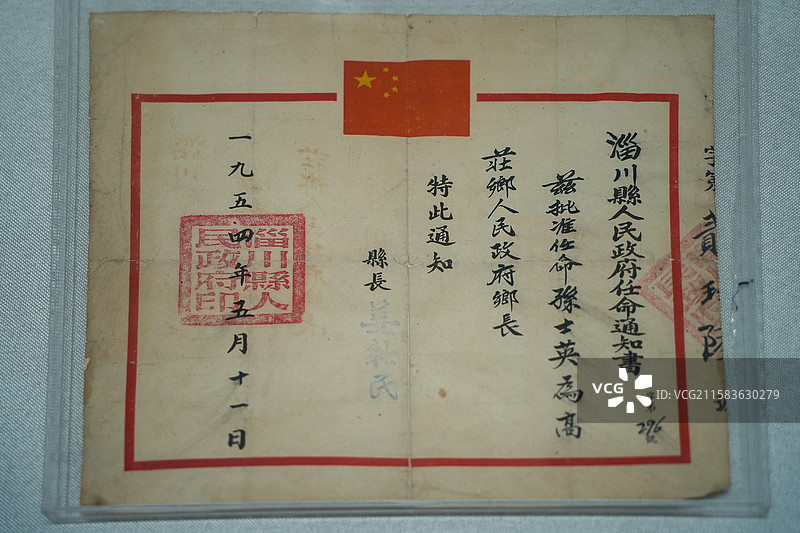 字第貳
淄川縣人民政府任命通知書
兹批准任命孫士英為高
莊鄉人民政府鄉長
特此通知
縣長
一九五四年五月十一日
淄川縣人
民政府印
296
VCG
VCG211583630279